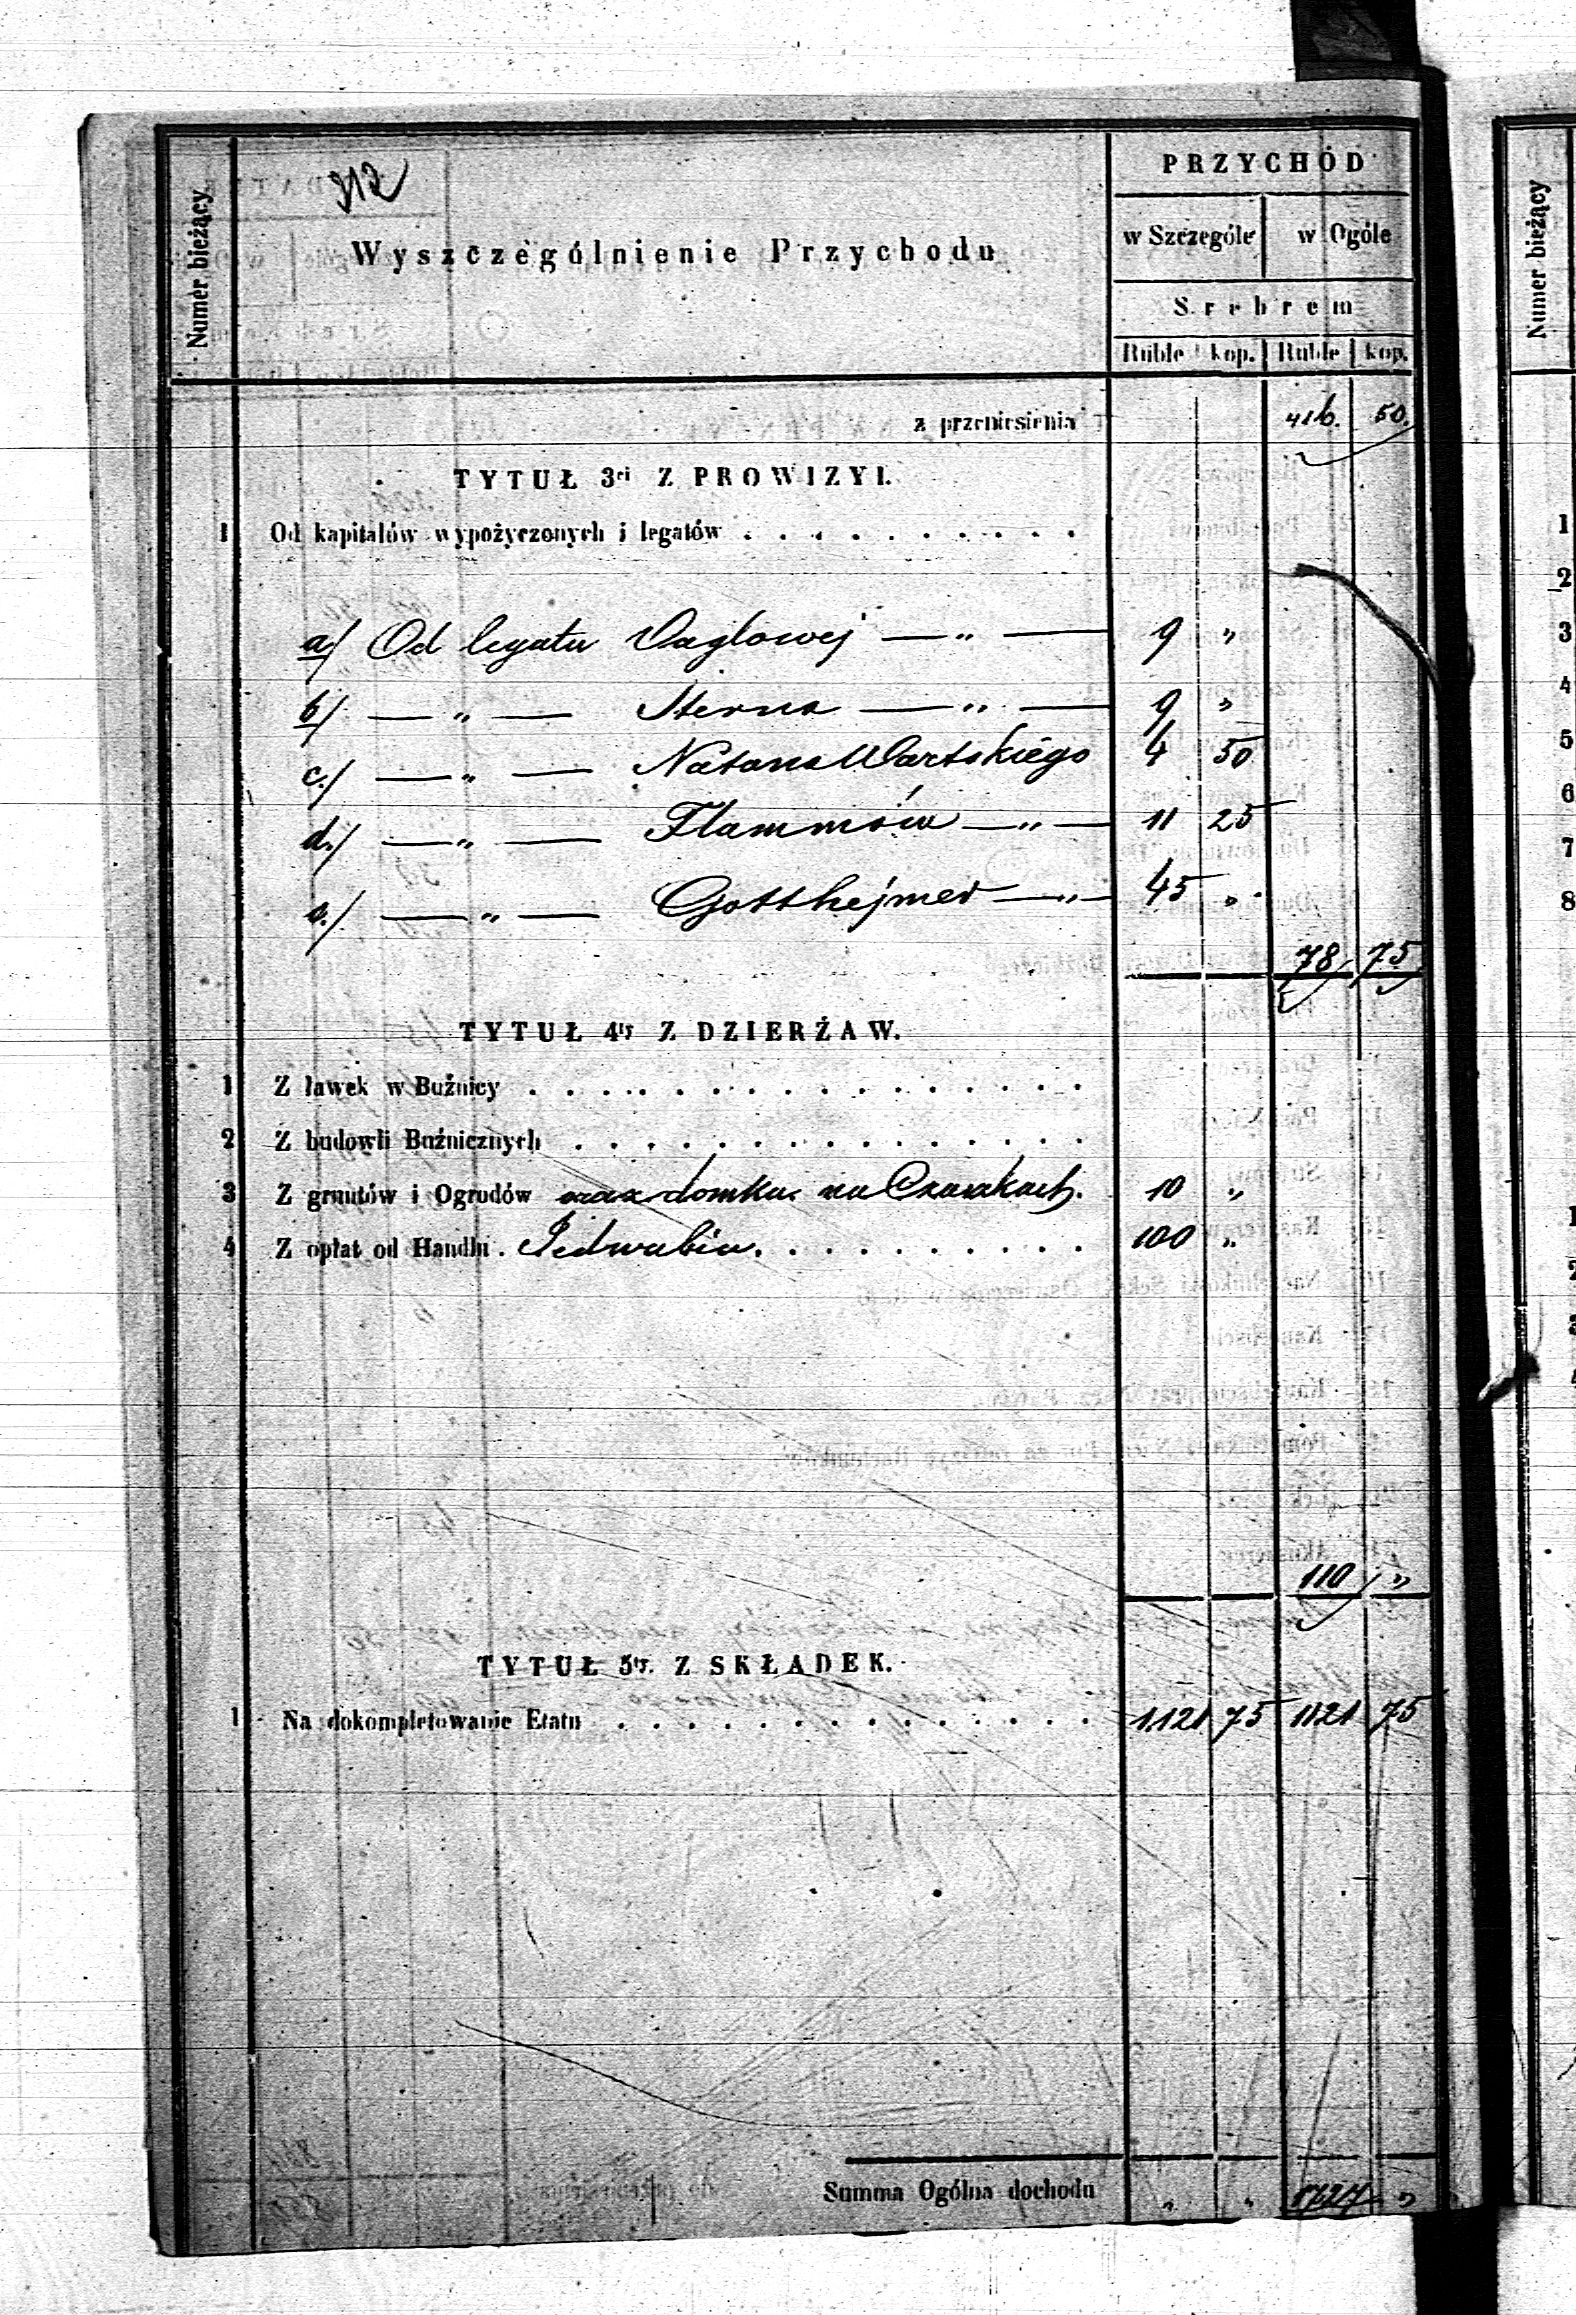 312
Numer bieżący
Wyszczególnienie Przychodu
PRZYCHÓD
w Szczególe w Ogóle
Srebrem
Ruble kop. Ruble kop.
z przeniesienia 416. 50.
TYTUŁ 3ci Z PROWIZYI.
1 Od kapitałów wypożyczonych i legatów . . . . . . . . . .
a/ Od legatu Vaglowej — „ — 9 „
b/ — „ — Sterna — „ — 9 „
c/ — „ — Natana Wartskiego 4 50
d/ — „ — Flammów — „ — 11 25
e/ — „ — Gotthejmer — „ — 45 „
78 75
TYTUŁ 4ty Z DZIERŻAW.
1 Z ławek w Bużnicy . . . . . . . . . . . . . . . .
2 Z budowli Bużnicznych . . . . . . . . . . . . . . .
3 Z gruntów i Ogrodów oraz domku na 10 „
4 Z opłat od Handlu . Jedwabiu . . . . . . . . . . 100 „
110 „
TYTUŁ 5ty. Z SKŁADEK.
1 Na dokompletowanie Etatu . . . . . . . . . . . . . . 1121 75 1121 75
Summa Ogólna dochodu „ „ 1727 „
Numer bieżący
1
2
3
4
5
6
7
8
1
2
3
4